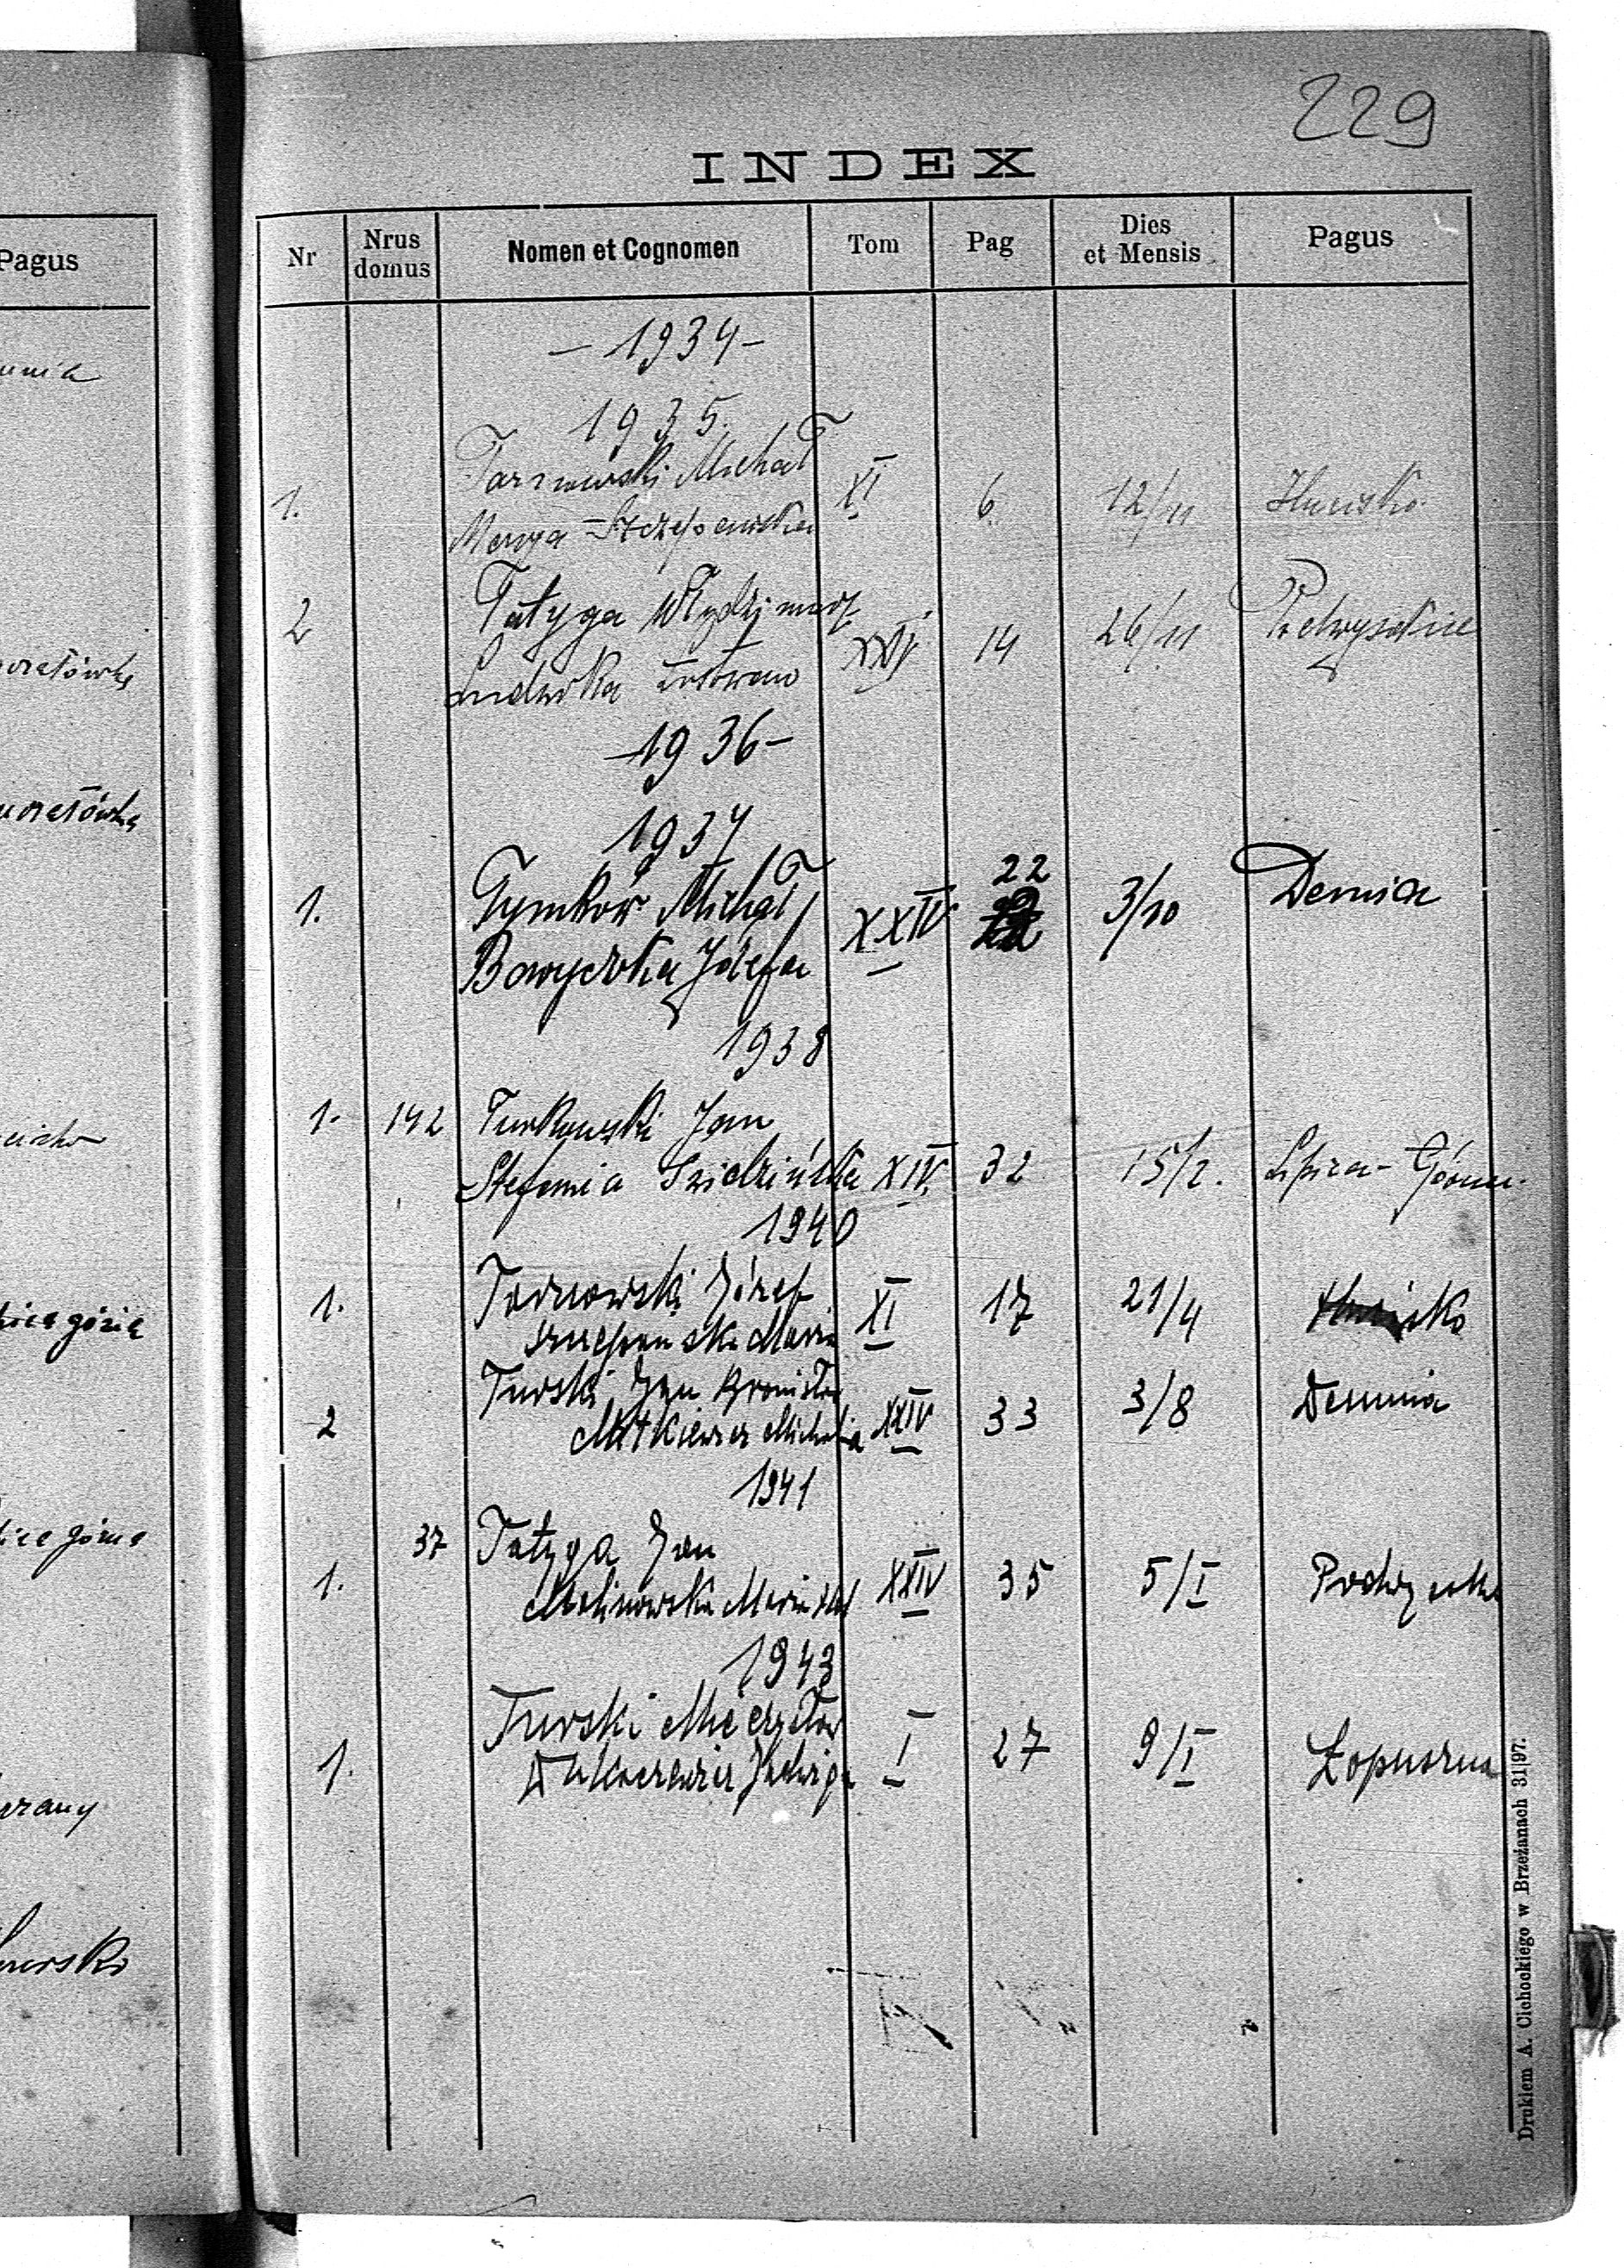 229
INDEX
Pagus
Nr Nrus domus Nomen et Cognomen Tom Pag Dies et Mensis Pagus
- 1934 -
1935.
Tarnowski Michał
1. XI 6. 12/11 Hucisko
Marya Szczepańska
2 Tatyga Włodzimierz XXIV 14 26/11 Podwysokie
Ludwika
- 1936 -
1937
1. Tymków Michał XXIV 22 3/10 Demia
Bawyczka Józefa
1938
1. 142 Turkowski Jan
Stefania XIV. 32 15/2. Lipica Górna.
1940
1. Tarnowski Józef XI 17 21/4 Hucisko
Szczepańska Maria
2 Turski Jan Bronisław XXIV 33 3/8 Demnia
Mitkiewicz Michalina
1941
37 Tatyga Jan
1. Malinowska Maria XXIV 35 5/I
1943
Turski Mieczysław
1. Jadwiga I 27 9/I Łopuszna
Drukiem A. Cichockiego w Brzeżanach 31|97.